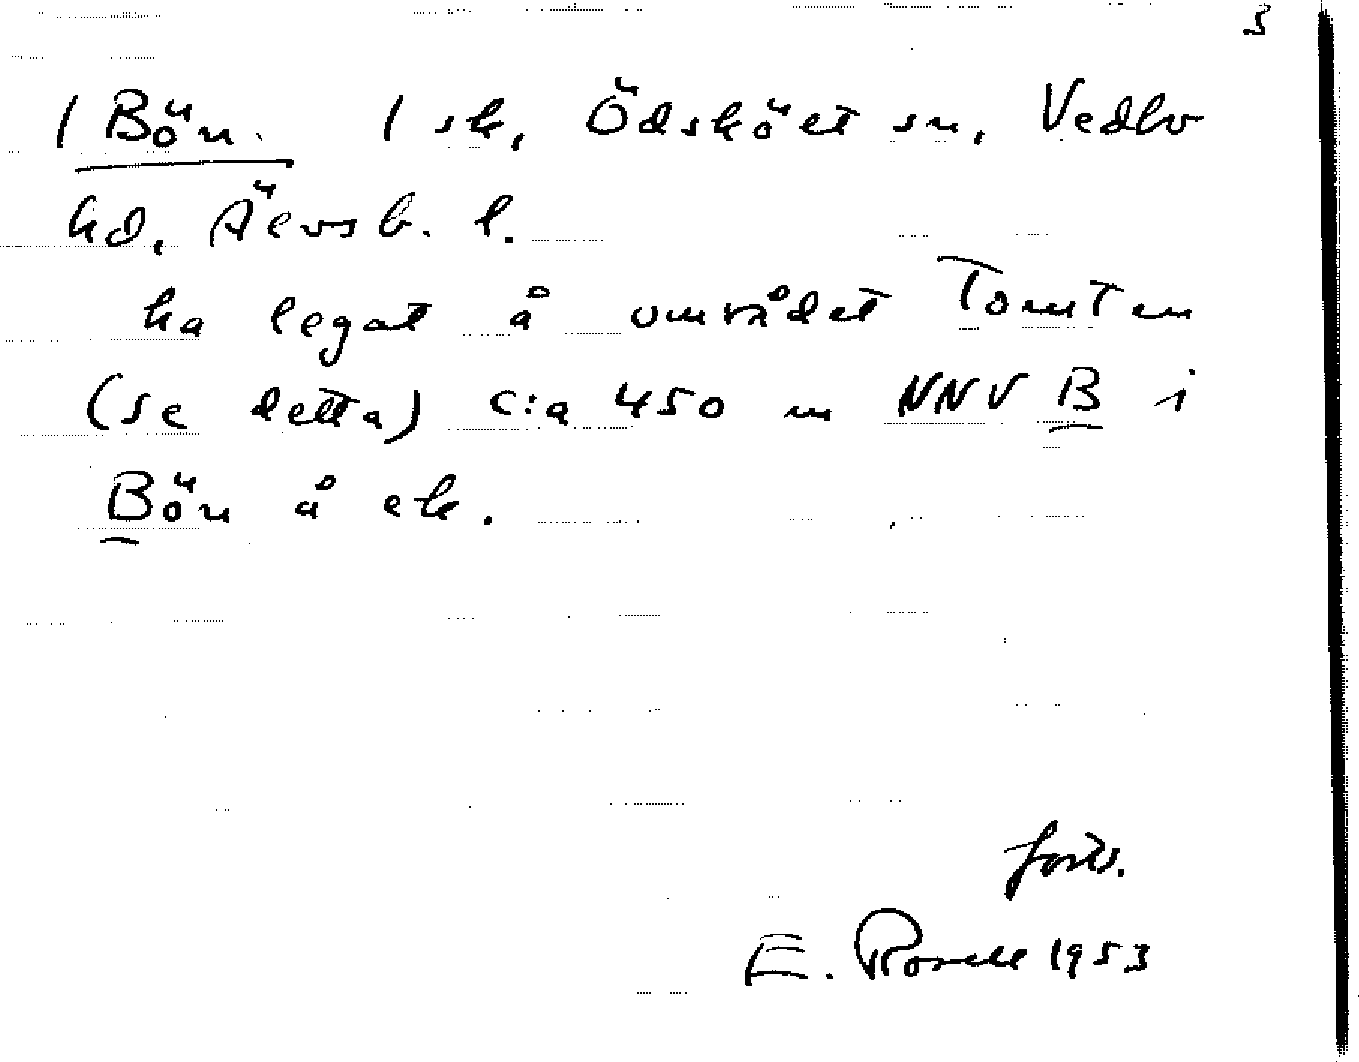 3
1 Bön. 1 sk, Ödskölt sn, Vedbo
hd, Älvsb. l.
ha legat å området Tomten
(se detta) c:a 450 m NNV B i
Bön å ek.
forts.
E. Rosell 1953